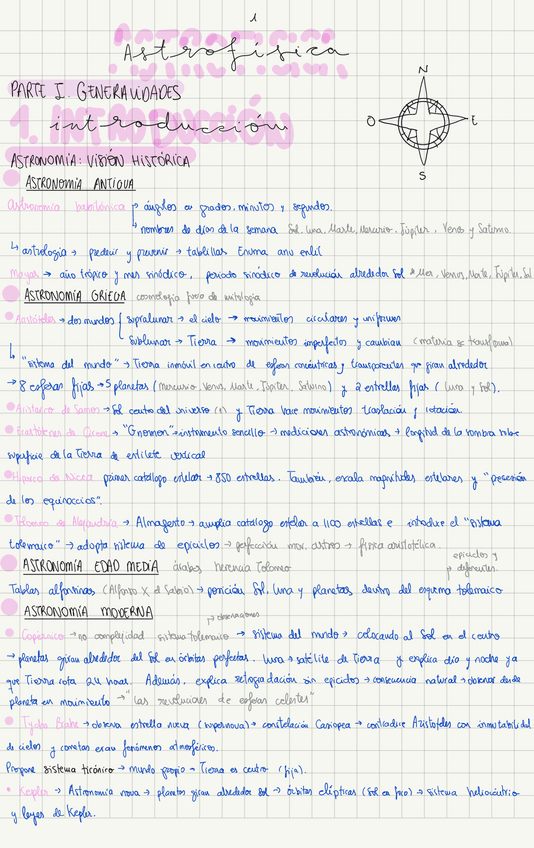 1
Astrofísica
PARTE I. GENERALIDADES
1. INTRODUCCIÓN
introducción
N
O E
S
ASTRONOMÍA: VISIÓN HISTÓRICA
ASTRONOMÍA ANTIGUA
Astronomía babilónica → ángulos en grados, minutos y segundos.
→ nombres de días de la semana Sol, Luna, Marte, Mercurio, Júpiter, Venus y Saturno.
↳ astrología → predecir y prevenir → tablillas Enuma anu enlil
Mayas → año trópico y mes sinódico, periodo sinódico de revolución alrededor Sol Mer, Venus, Marte, Júpiter, Sat
ASTRONOMÍA GRIEGA cosmología fuera de mitología
Aristóteles → dos mundos supralunar → el cielo → movimientos circulares y uniformes
sublunar → Tierra → movimientos imperfectos y cambian (materia se transforma)
↳ "sistema del mundo" → Tierra inmóvil en centro de esferas concéntricas y transparentes que giran alrededor
→ 8 esferas fijas → 5 planetas (Mercurio, Venus, Marte, Júpiter, Saturno) y 2 estrellas fijas (Luna y Sol).
Aristarco de Samos → Sol centro del universo y Tierra hace movimientos traslación y rotación.
Eratóstenes de Cirene → "Gnomon" → instrumento sencillo → mediciones astronómicas → longitud de la sombra sobre
superficie de la Tierra de estilete vertical
Hiparco de Nicea primer catálogo estelar → 850 estrellas. También, escala magnitudes estelares y "precesión
de los equinoccios".
Tolomeo de Alejandría → Almagesto → amplía catálogo estelar a 1100 estrellas e introduce el "sistema
tolemaico" → adopta sistema de epiciclos → perfección mov. astros → física aristotélica
epiciclos y
deferentes.
ASTRONOMÍA EDAD MEDIA árabes, herencia Tolomeo
Tablas alfonsinas (Alfonso X el Sabio) → posición Sol, Luna y planetas dentro del esquema tolemaico
ASTRONOMÍA MODERNA
→ observaciones
Copérnico → no complejidad sistema tolemaico → sistema del mundo → colocando al Sol en el centro
→ planetas giran alrededor del Sol en órbitas perfectas. Luna → satélite de Tierra y explica día y noche ya
que Tierra rota 24 horas. Además, explica retrogradación sin epiciclos → consecuencia natural → observar desde
planeta en movimiento → "las revoluciones de esferas celestes"
Tycho Brahe → observa estrella nueva (supernova) → constelación Casiopea → contradice Aristóteles con inmutabilidad
de cielos y cometas eran fenómenos atmosféricos.
Propone sistema ticónico → mundo propio → Tierra es centro (fija).
Kepler → Astronomía nova → planetas giran alrededor Sol → órbitas elípticas (Sol en foco) → sistema heliocéntrico
y leyes de Kepler.